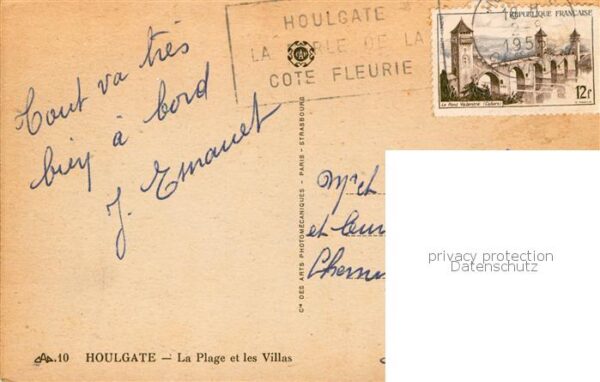 HOULGATE
LA PERLE DE LA
COTE FLEURIE
REPUBLIQUE FRANÇAISE
Le Pont Valentré (Cahors)
12f
Tout va très
bien à bord
J. Emanuet
Mr et
et leur
Chemi
Cie DES ARTS PHOTOMÉCANIQUES - PARIS - STRASBOURG
privacy protection
Datenschutz
CAP.10 HOULGATE — La Plage et les Villas